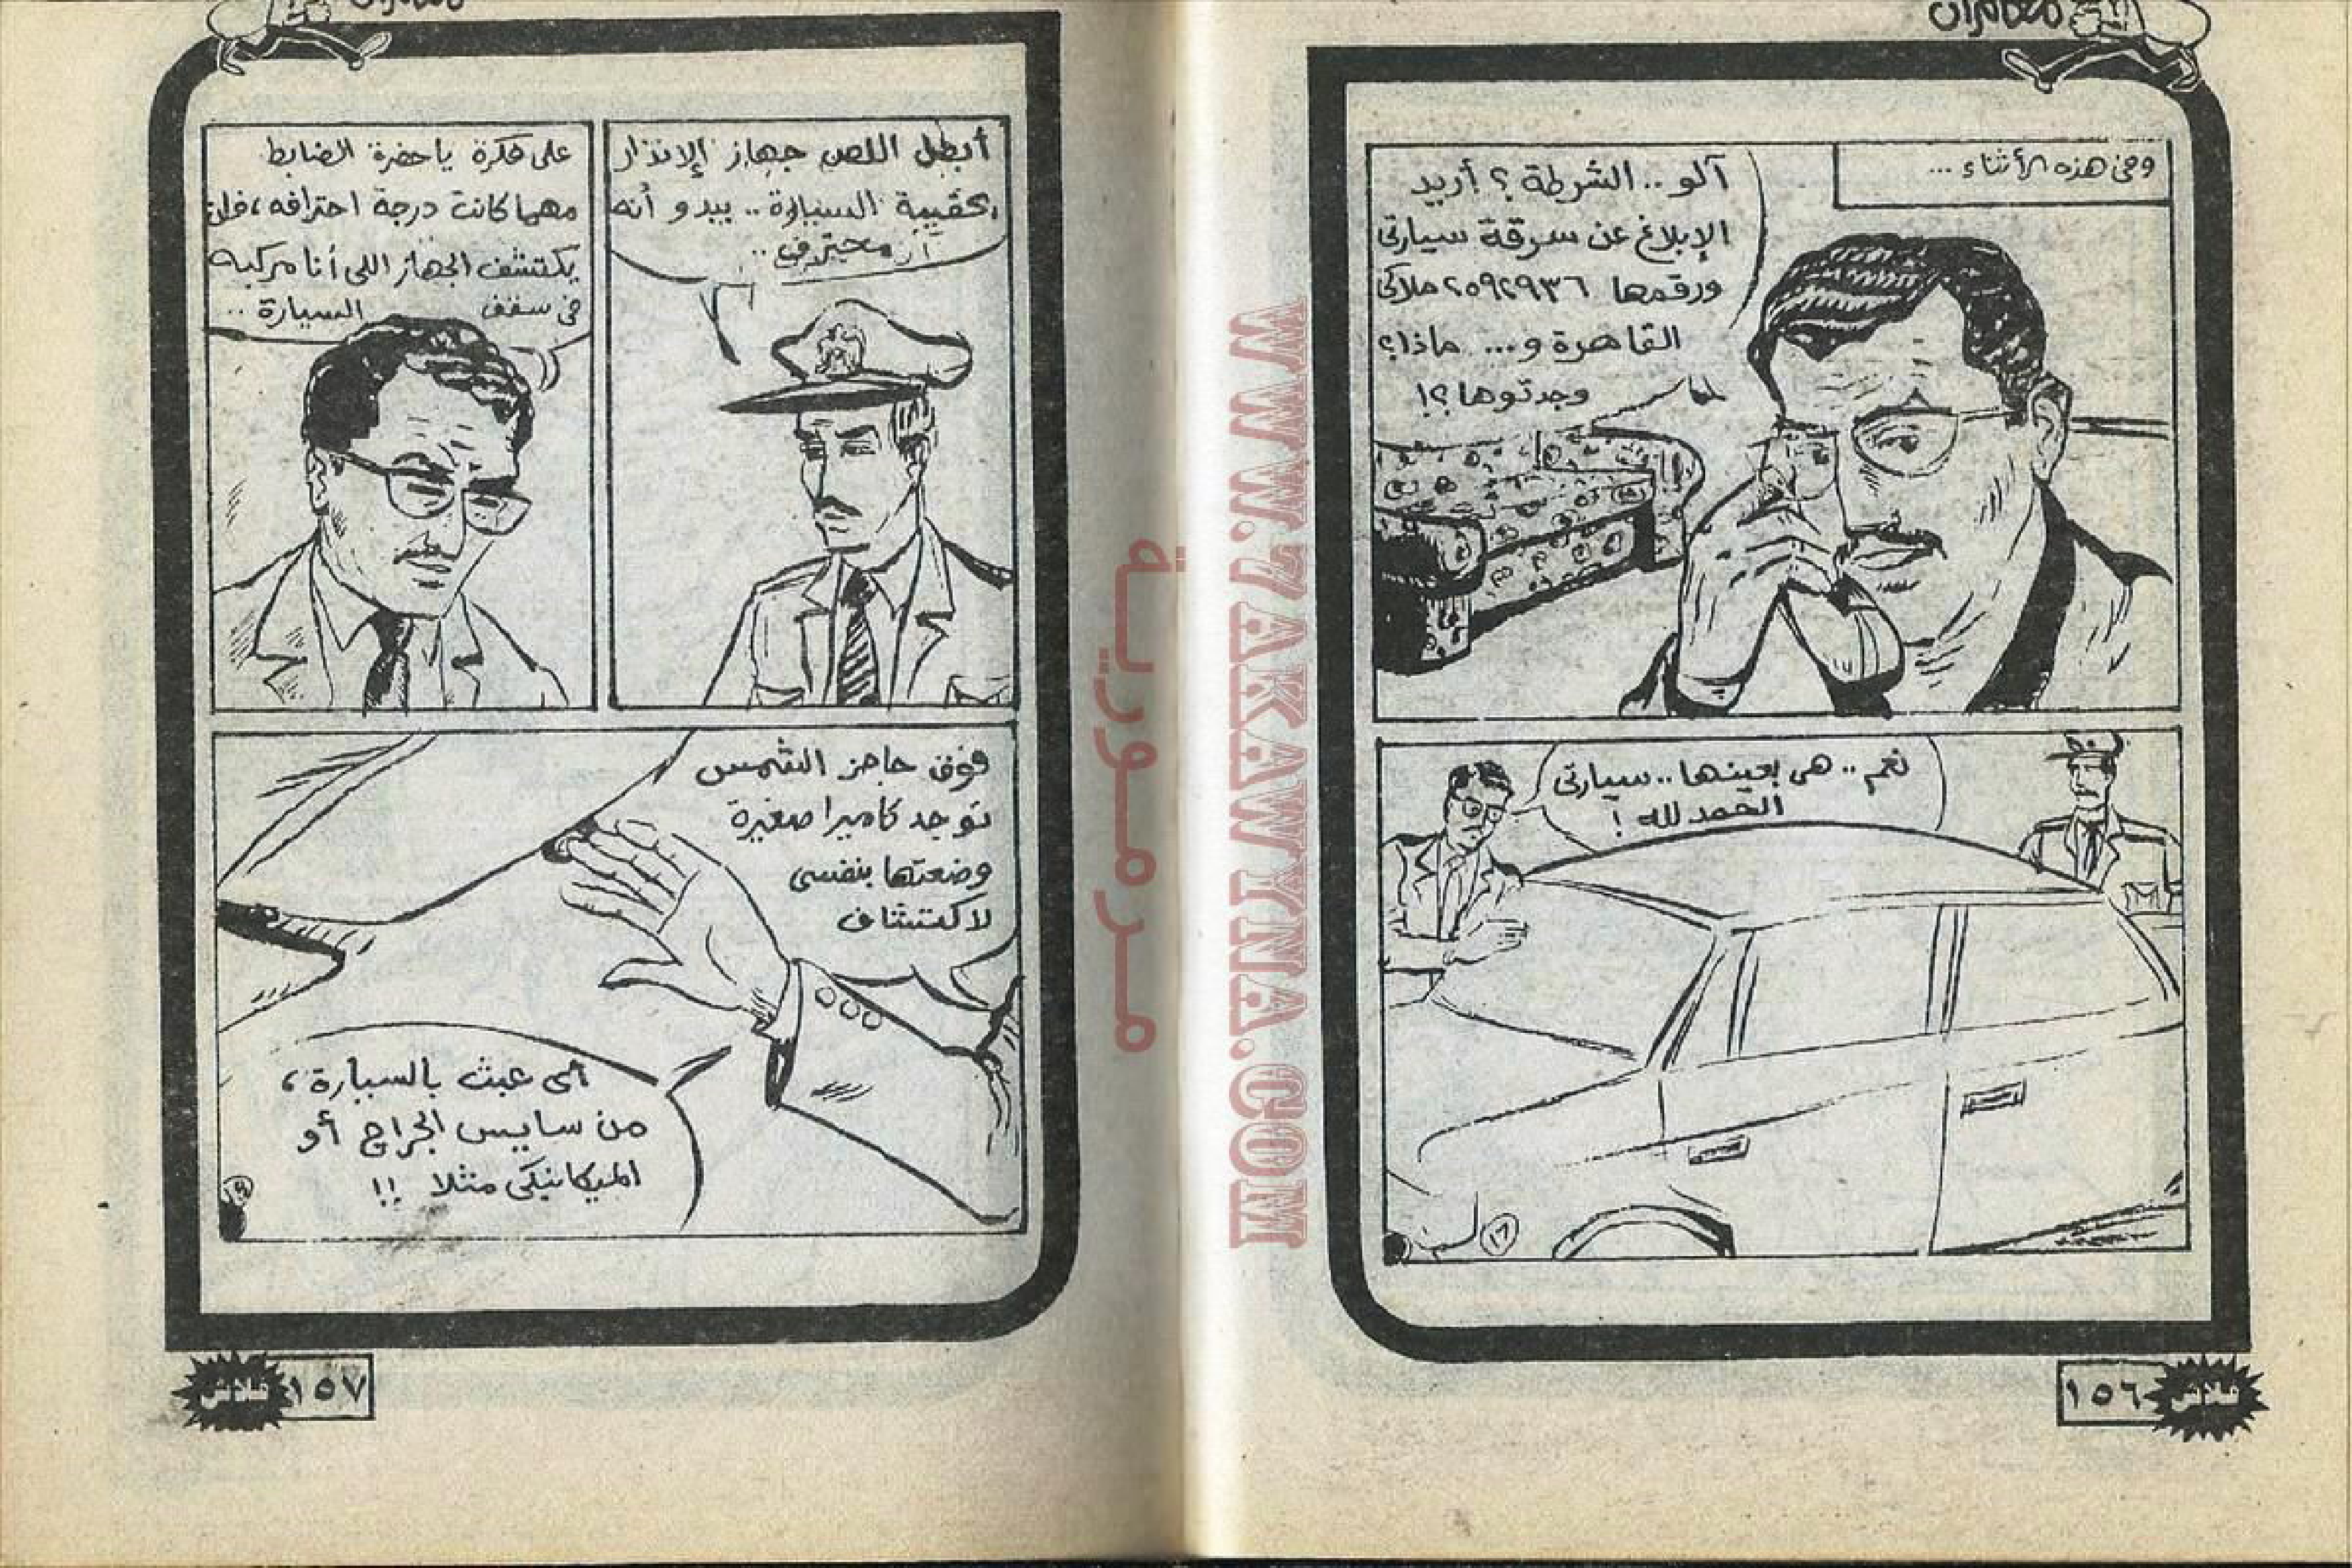 مغامرات
وفى هذه الأثناء ...
آلو .. الشرطة ؟ أريد
الإبلاغ عن سرقة سيارتى
ورقمها ٢٥٩٢٩٣٦ ملاكى
القاهرة و... ماذا؟
وجدتوها ؟!
نعم .. هى بعينها .. سيارتى
الحمد لله !
١٦
١٥٦
فلاش
مغامرات
أبطل اللص جهاز الإنذار
بحقيبة السيارة .. يبدو أنه
محترف ..
على فكرة يا حضرة الضابط
مهما كانت درجة احترافه ، فلن
يكتشف الجهاز اللى أنا مركبه
فى سقف السيارة ..
فوق حاجز الشمس
توجد كاميرا صغيرة
وضعتها بنفسى
لاكتشاف
أى عبث بالسيارة ،
من سايس الجراج أو
الميكانيكى مثلا !!
١٥٧
فلاش
مرمورية
WWW.7AKAWYNA.COM